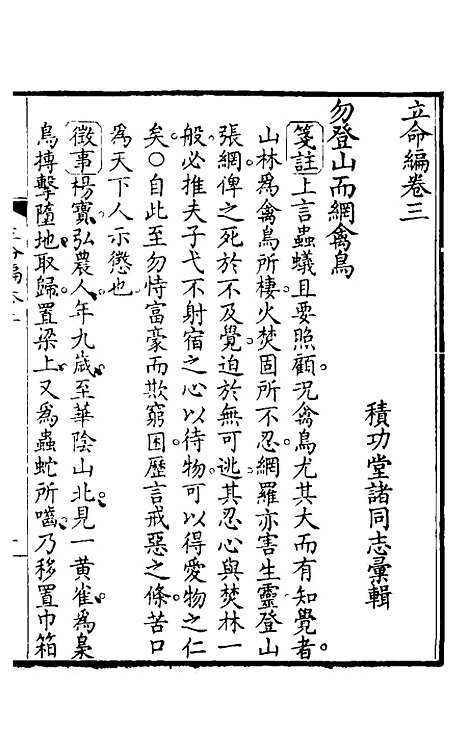 立命編卷三
積功堂諸同志彙輯
勿登山而網禽鳥
箋註上言蟲蟻且要照顧况禽鳥尤其大而有知覺者
山林爲禽鳥所棲火焚固所不忍網羅亦害生靈登山
張網俾之死於不及覺迫於無可逃其忍心與焚林一
般必推夫子弋不射宿之心以待物可以得愛物之仁
矣○自此至勿恃富豪而欺窮困歷言戒惡之條苦口
爲天下人示懲也
徵事楊寳弘農人年九歲至華陰山北見一黃雀爲梟
鳥搏擊墮地取歸置梁上又爲蟲蛇所嚙乃移置巾箱